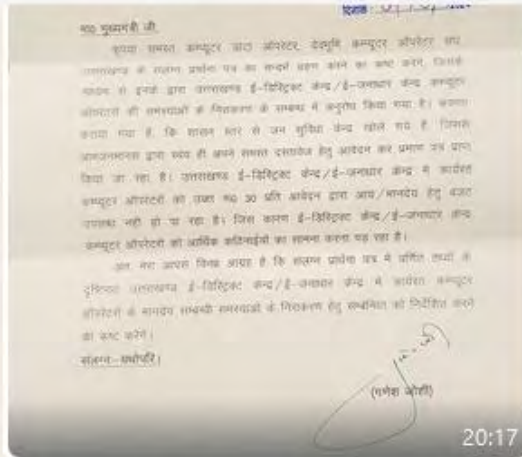 मा0 मुख्यमंत्री जी,
कृपया समस्त कम्प्यूटर डाटा ऑपरेटर, देवभूमि कम्प्यूटर ऑपरेटर संघ
उत्तराखण्ड के संलग्न प्रार्थना पत्र का सन्दर्भ ग्रहण करने का कष्ट करें, जिसके
माध्यम से इनके द्वारा उत्तराखण्ड ई-डिस्ट्रिक्ट केन्द्र/ई-जनाधार केन्द्र कम्प्यूटर
ऑपरेटरों की समस्याओं के निराकरण के सम्बन्ध में अनुरोध किया गया है। अवगत
कराया गया है, कि शासन स्तर से जन सुविधा केन्द्र खोले गये है, जिसमें
आमजनमानस द्वारा स्वंय ही अपने समस्त दस्तावेज हेतु आवेदन कर प्रमाण पत्र प्राप्त
किया जा रहा है। उत्तराखण्ड ई-डिस्ट्रिक्ट केन्द्र/ई-जनाधार केन्द्र में कार्यरत
कम्प्यूटर ऑपरेटरों को उक्त रू0 30 प्रति आवेदन द्वारा आय/मानदेय हेतु बजट
उपलब्ध नहीं हो पा रहा है। जिस कारण ई-डिस्ट्रिक्ट केन्द्र/ई-जनाधार केन्द्र
कम्प्यूटर ऑपरेटरों को आर्थिक कठिनाईयों का सामना करना पड़ रहा है।
अतः मेरा आपसे विनम्र आग्रह है कि संलग्न प्रार्थना पत्र में वर्णित तथ्यों के
दृष्टिगत उत्तराखण्ड ई-डिस्ट्रिक्ट केन्द्र/ई-जनाधार केन्द्र में कार्यरत कम्प्यूटर
ऑपरेटरों के मानदेय सम्बन्धी समस्याओं के निराकरण हेतु सम्बन्धित को निर्देशित करने
का कष्ट करेंगे।
संलग्न-यथोपरि।
(गणेश जोशी)
20:17